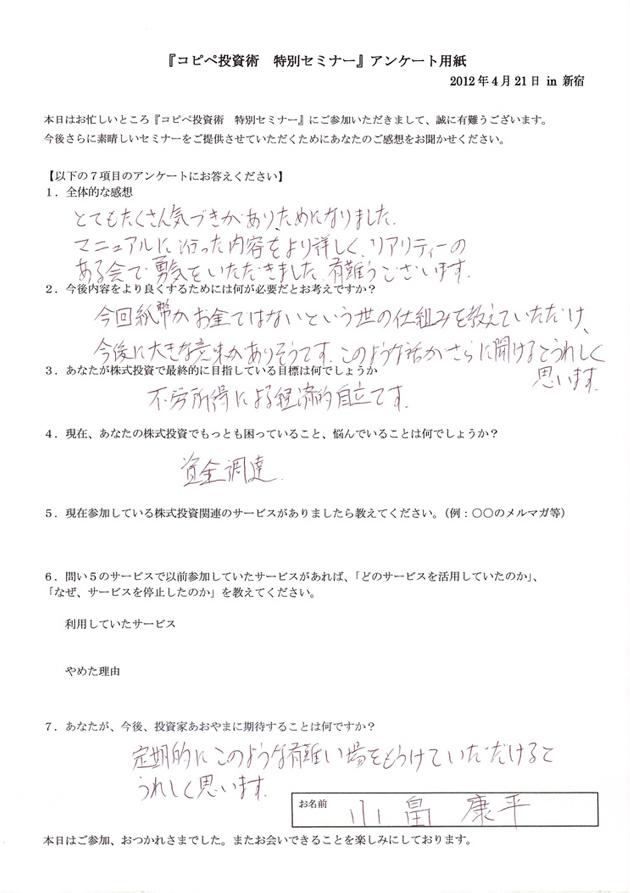 『コピペ投資術　特別セミナー』アンケート用紙
2012年4月21日 in 新宿
本日はお忙しいところ『コピペ投資術　特別セミナー』にご参加いただきまして、誠に有難うございます。
今後さらに素晴しいセミナーをご提供させていただくためにあなたのご感想をお聞かせください。
【以下の７項目のアンケートにお答えください】
１．全体的な感想
とてもたくさん気づきがあり、ためになりました。
マニュアルに沿った内容をより詳しく、リアリティーの
ある会で勇気をいただきました。有難うございます。
２．今後内容をより良くするためには何が必要だとお考えですか？
今回紙幣がお金ではないという世の仕組みを教えていただけ、
今後に大きな意味がありそうです。このような話がさらに聞けるとうれしく
思います。
３．あなたが株式投資で最終的に目指している目標は何でしょうか
不労所得による経済的自立です。
４．現在、あなたの株式投資でもっとも困っていること、悩んでいることは何でしょうか？
資金調達
５．現在参加している株式投資関連のサービスがありましたら教えてください。（例：〇〇のメルマガ等）
６．問い５のサービスで以前参加していたサービスがあれば、「どのサービスを活用していたのか」、
「なぜ、サービスを停止したのか」を教えてください。
利用していたサービス
やめた理由
７．あなたが、今後、投資家あおやまに期待することは何ですか？
定期的にこのような有難い場をもうけていただけると
うれしく思います。
お名前 小畠 康平
本日はご参加、おつかれさまでした。またお会いできることを楽しみにしております。